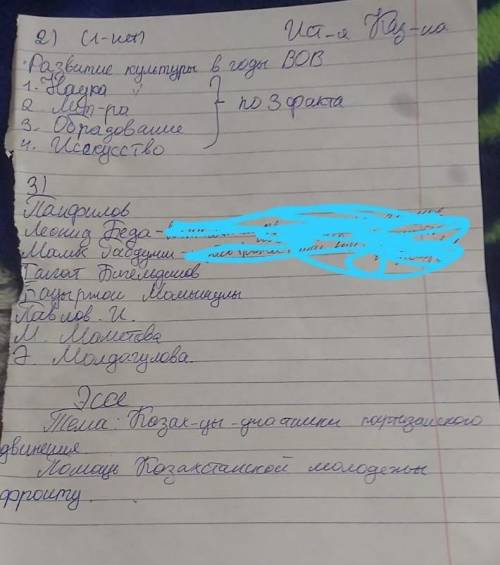 2) (1-нот) Ист-я Каз-на
Развитие культуры в годы ВОВ
1. Наука
2. Лит-ра } по 3 факта
3. Образование
4. Исскуство
3)
Панфилов
Леонид Беда -
Малик Габдулин -
Талгат Бигельдинов
Бауыржан Момышулы
Павлов. И.
М. Маметова
Э. Молдагулова.
Эссе
Тема: Казах-цы -участники партизанского
движения
Помощь Казахстанской молодежы
фронту.